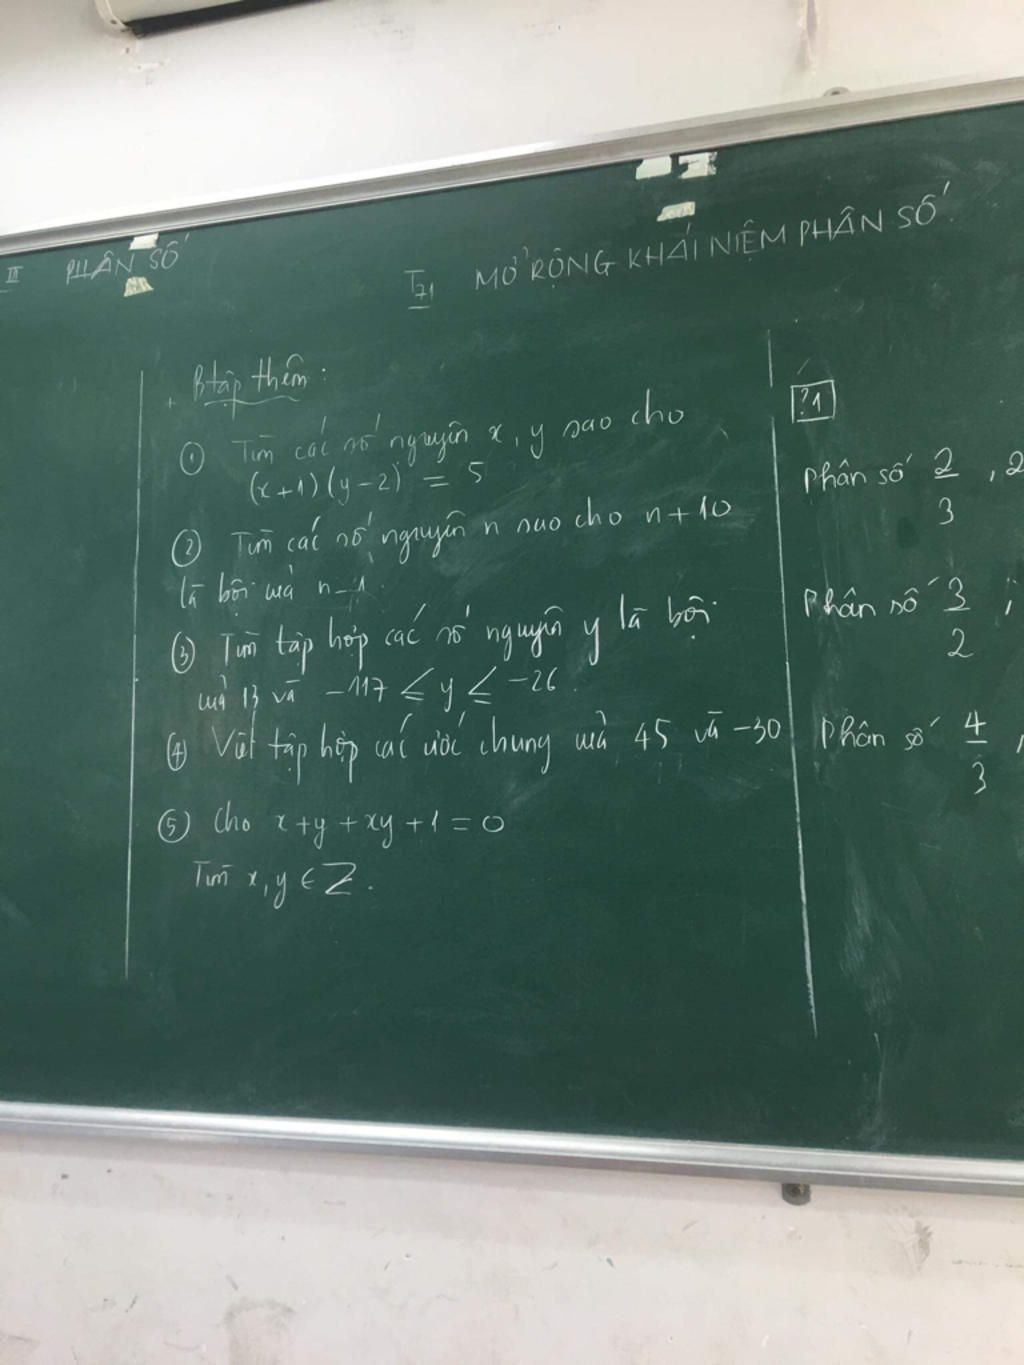 III PHÂN SỐ
T71 MỞ RỘNG KHÁI NIỆM PHÂN SỐ
Btập thêm:
① Tìm các số nguyên x, y sao cho
(x+1)(y-2) = 5
② Tìm các số nguyên n sao cho n+10
là bội của n-1.
③ Tìm tập hợp các số nguyên y là bội
của 13 và -117 ≤ y ≤ -26.
④ Viết tập hợp các ước chung của 45 và -30
⑤ Cho x+y+xy+1=0
Tìm x, y ∈ Z.
?1
Phân số 2/3, 2
Phân số 3/2;
Phân số 4/3,